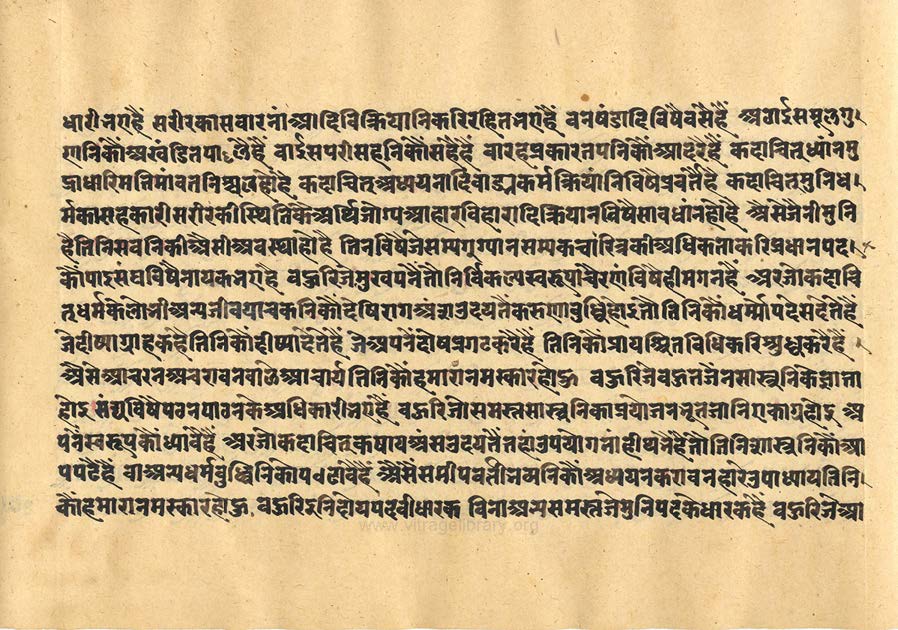 धारी भए हैं सरीरका सवारनां आदि विक्रियानिकरि रहित भए हैं वनषंडादिविषै वसै हैं अठाईस मूलगु
णनिकौं अखंडित पालै हैं वाईस परीसहनिकौं सहै हैं वारह प्रकार तपनिकौं आदरै हैं कदाचित् ध्यानमु
द्राधारि प्रतिमावत निश्चल हो है कदाचित् अध्ययनादि वाह्य धर्मक्रियानिविषै प्रवर्तै है कदाचित् मुनिध
र्मका सहकारी सरीरकी स्थितिकै अर्थि जोग्य आहार विहारादि क्रियानिविषै सावधान हो है अैसै जैनी मुनि
है तिनि सवनिकी अैसी अवस्था हो है तिनविषै जे सम्यग्ज्ञान सम्यकचारित्रकी अधिकताकरि प्रधान पद
कौं पाइ संघविषै नायक भए है वहुरि जे मुख्यपनै तौ निर्विकल्प स्वरूपाचरणविषै ही मगन है अर जो कदाचि
त् धर्मके लोभी अन्य जीव याचक तिनिकौं देषि राग अंशउदयतैं करुणावुद्धि होइ तौ तिनिकौं धर्मोपदेस देते हैं
जे दीष्याग्राहक है तिनिकौं दीष्या देते हैं जे अपने दोष प्रगट करै हैं तिनिकौं प्रायश्चित विधिकरि सुद्ध करै हैं
अैसै आचरन अचरावनवाले आचार्य तिनिकौं हमारा नमस्कार होऊ वहुरि जे वहुत जैनसास्त्रनिके ज्ञाता
होइ संघविषै पठनपाठनके अधिकारी भए हैं वहुरि जो समस्त सास्त्रनिका प्रयोजनभूत जानि एकाग्र होइ अ
पने स्वरूपकौं ध्यावै हैं अर जो कदाचित् कषाय अंसउदयतैं तहां उपयोग नांही थंभै है तौ तिनि शास्त्रनिकौं आ
प पढै हैं वा अन्य धर्मवुद्धिनिकौ पढावै हैं अैसै समीपवर्ती भव्यनिकौं अध्ययन करावनहारे उपाध्याय तिनि
कौं हमारा नमस्कार होऊ वहुरि इनि दोय पदवीधारक विना अन्य समस्त जे मुनिपदके धारक हैं वहुरि जे आ
www.vitragelibrary.org